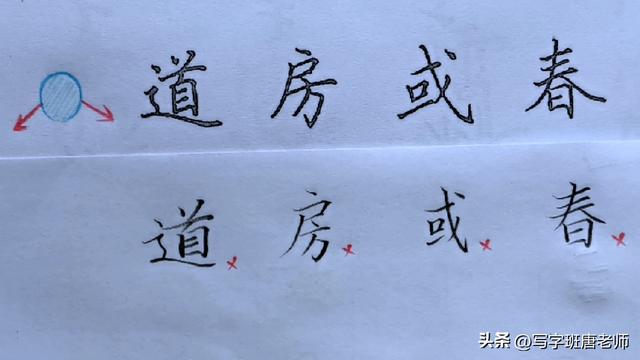 道 房 或 春
道 房 或 春
头条 @写字班唐老师